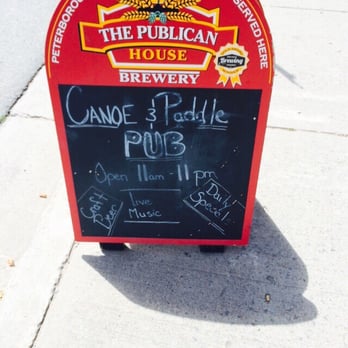 PETERBORO
SERVED HERE
THE PUBLICAN
HOUSE
BREWERY
Brewing
CANOE & Paddle
PUB
Open 11am - 11 pm
Craft
Beer
Live
Music
Daily
Special